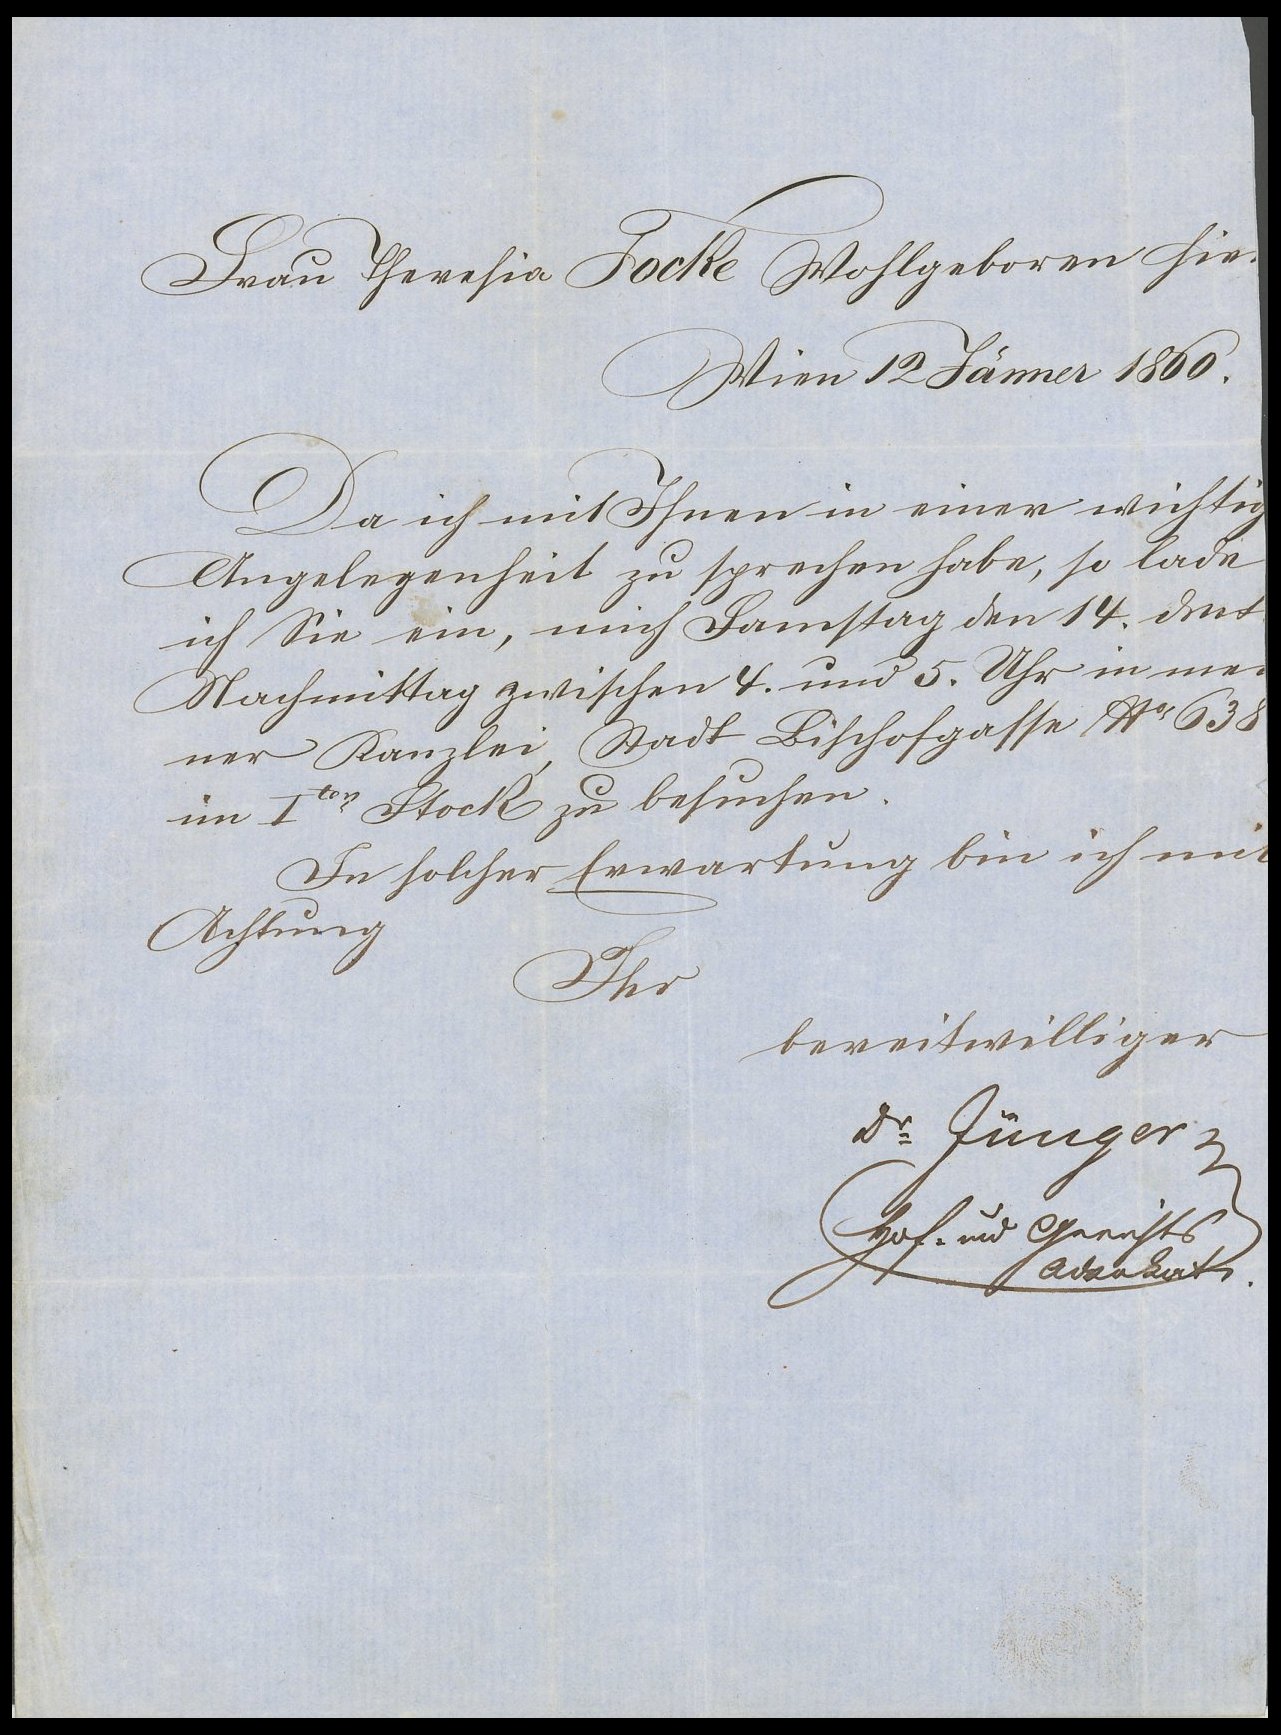 Frau Theresia Focke Wohlgeboren hier
Wien 12 Jänner 1860.
Da ich mit Ihnen in einer wichtig
Angelegenheit zu sprechen habe, so lade
ich Sie ein, mich Samstag den 14. dmts
Nachmittag zwischen 4. und 5. Uhr in mei
ner Kanzlei, Stadt Bischofgasse Nr 638
im Iten Stock zu besuchen.
In solcher Erwartung bin ich mit
Achtung
Ihr
bereitwilliger
Dr. Jünger
Hof- und Gerichts
Advokat.